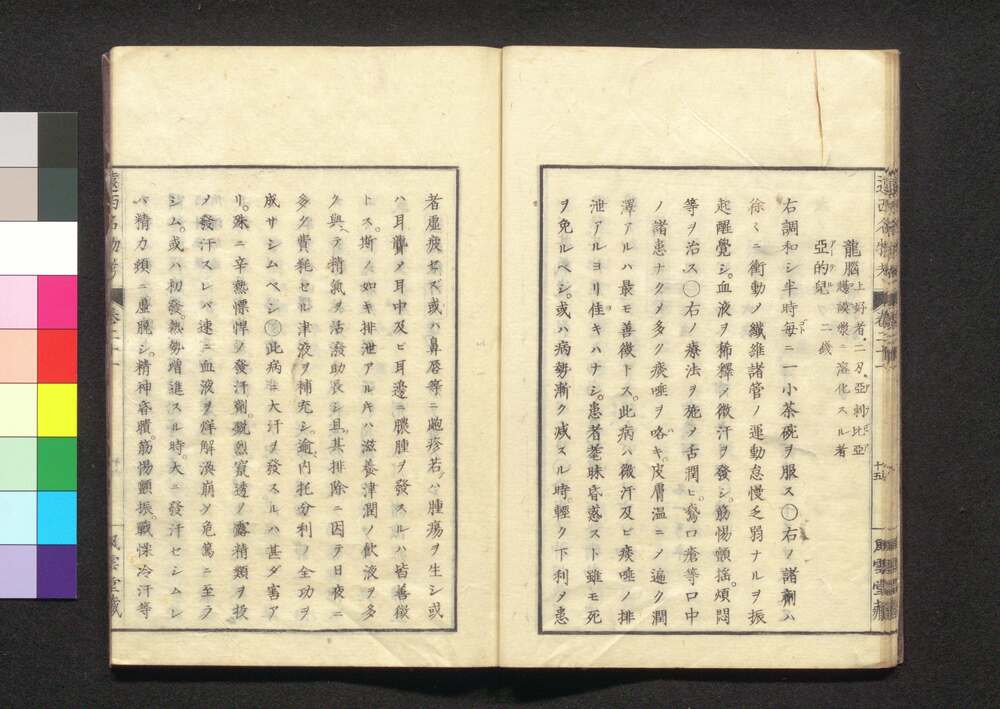 龍腦 上好者二刄亞剌比亞
護謨漿ニ溶化スル者
亞的兒 二錢
右調和シ半時每ニ一小茶碗ヲ服ス○右ノ諸劑ハ
徐々ニ衝動メ纖維諸管ノ運動怠慢乏弱ナルヲ振
起醒覺シ血液ヲ稀釋メ微汗ヲ發シ筋惕顫搖煩悶
等ヲ治ス○右ノ療法ヲ施メ舌潤ヒ鵞口瘡等口中
ノ諸患ナクメ多ク痰唾ヲ咯キ皮膚温ニメ遍ク潤
澤アルハ最モ善徵トス此病ハ微汗及ビ痰唾ノ排
泄アルヨリ佳キハナシ患者耄昧昏惑スト雖モ死
ヲ免ルベシ或ハ病勢漸ク減スル時輕ク下利メ患
者虛疲セズ或ハ鼻唇等ニ皰疹若ハ腫瘍ヲ生シ或
ハ耳聾メ耳中及ビ耳邊ニ膿腫ヲ發スルハ皆善徵
トス斯ノ如キ排泄アル片ハ滋養津潤ノ飮液ヲ多
ク與ヘテ精氣ヲ活潑助長シ且其排除ニ因テ日夜ニ
多ク費耗セル津液ヲ補充シ逾内托分利ノ全功ヲ
成サシムベシ○此病准大汗ヲ發スルハ甚ダ害ア
リ殊ニ辛熱慓悍ノ發汗劑銳烈竄透ノ露精類ヲ投
メ發汗スレバ速ニ血液ヲ烊解潰崩メ危篤ニ至ラ
シム或ハ初發熱勢增進スル時大ニ發汗セシムレ
バ精力頓ニ虛脫シ精神昏瞶筋惕顫振戰慄冷汗等
十五
風雲堂藏